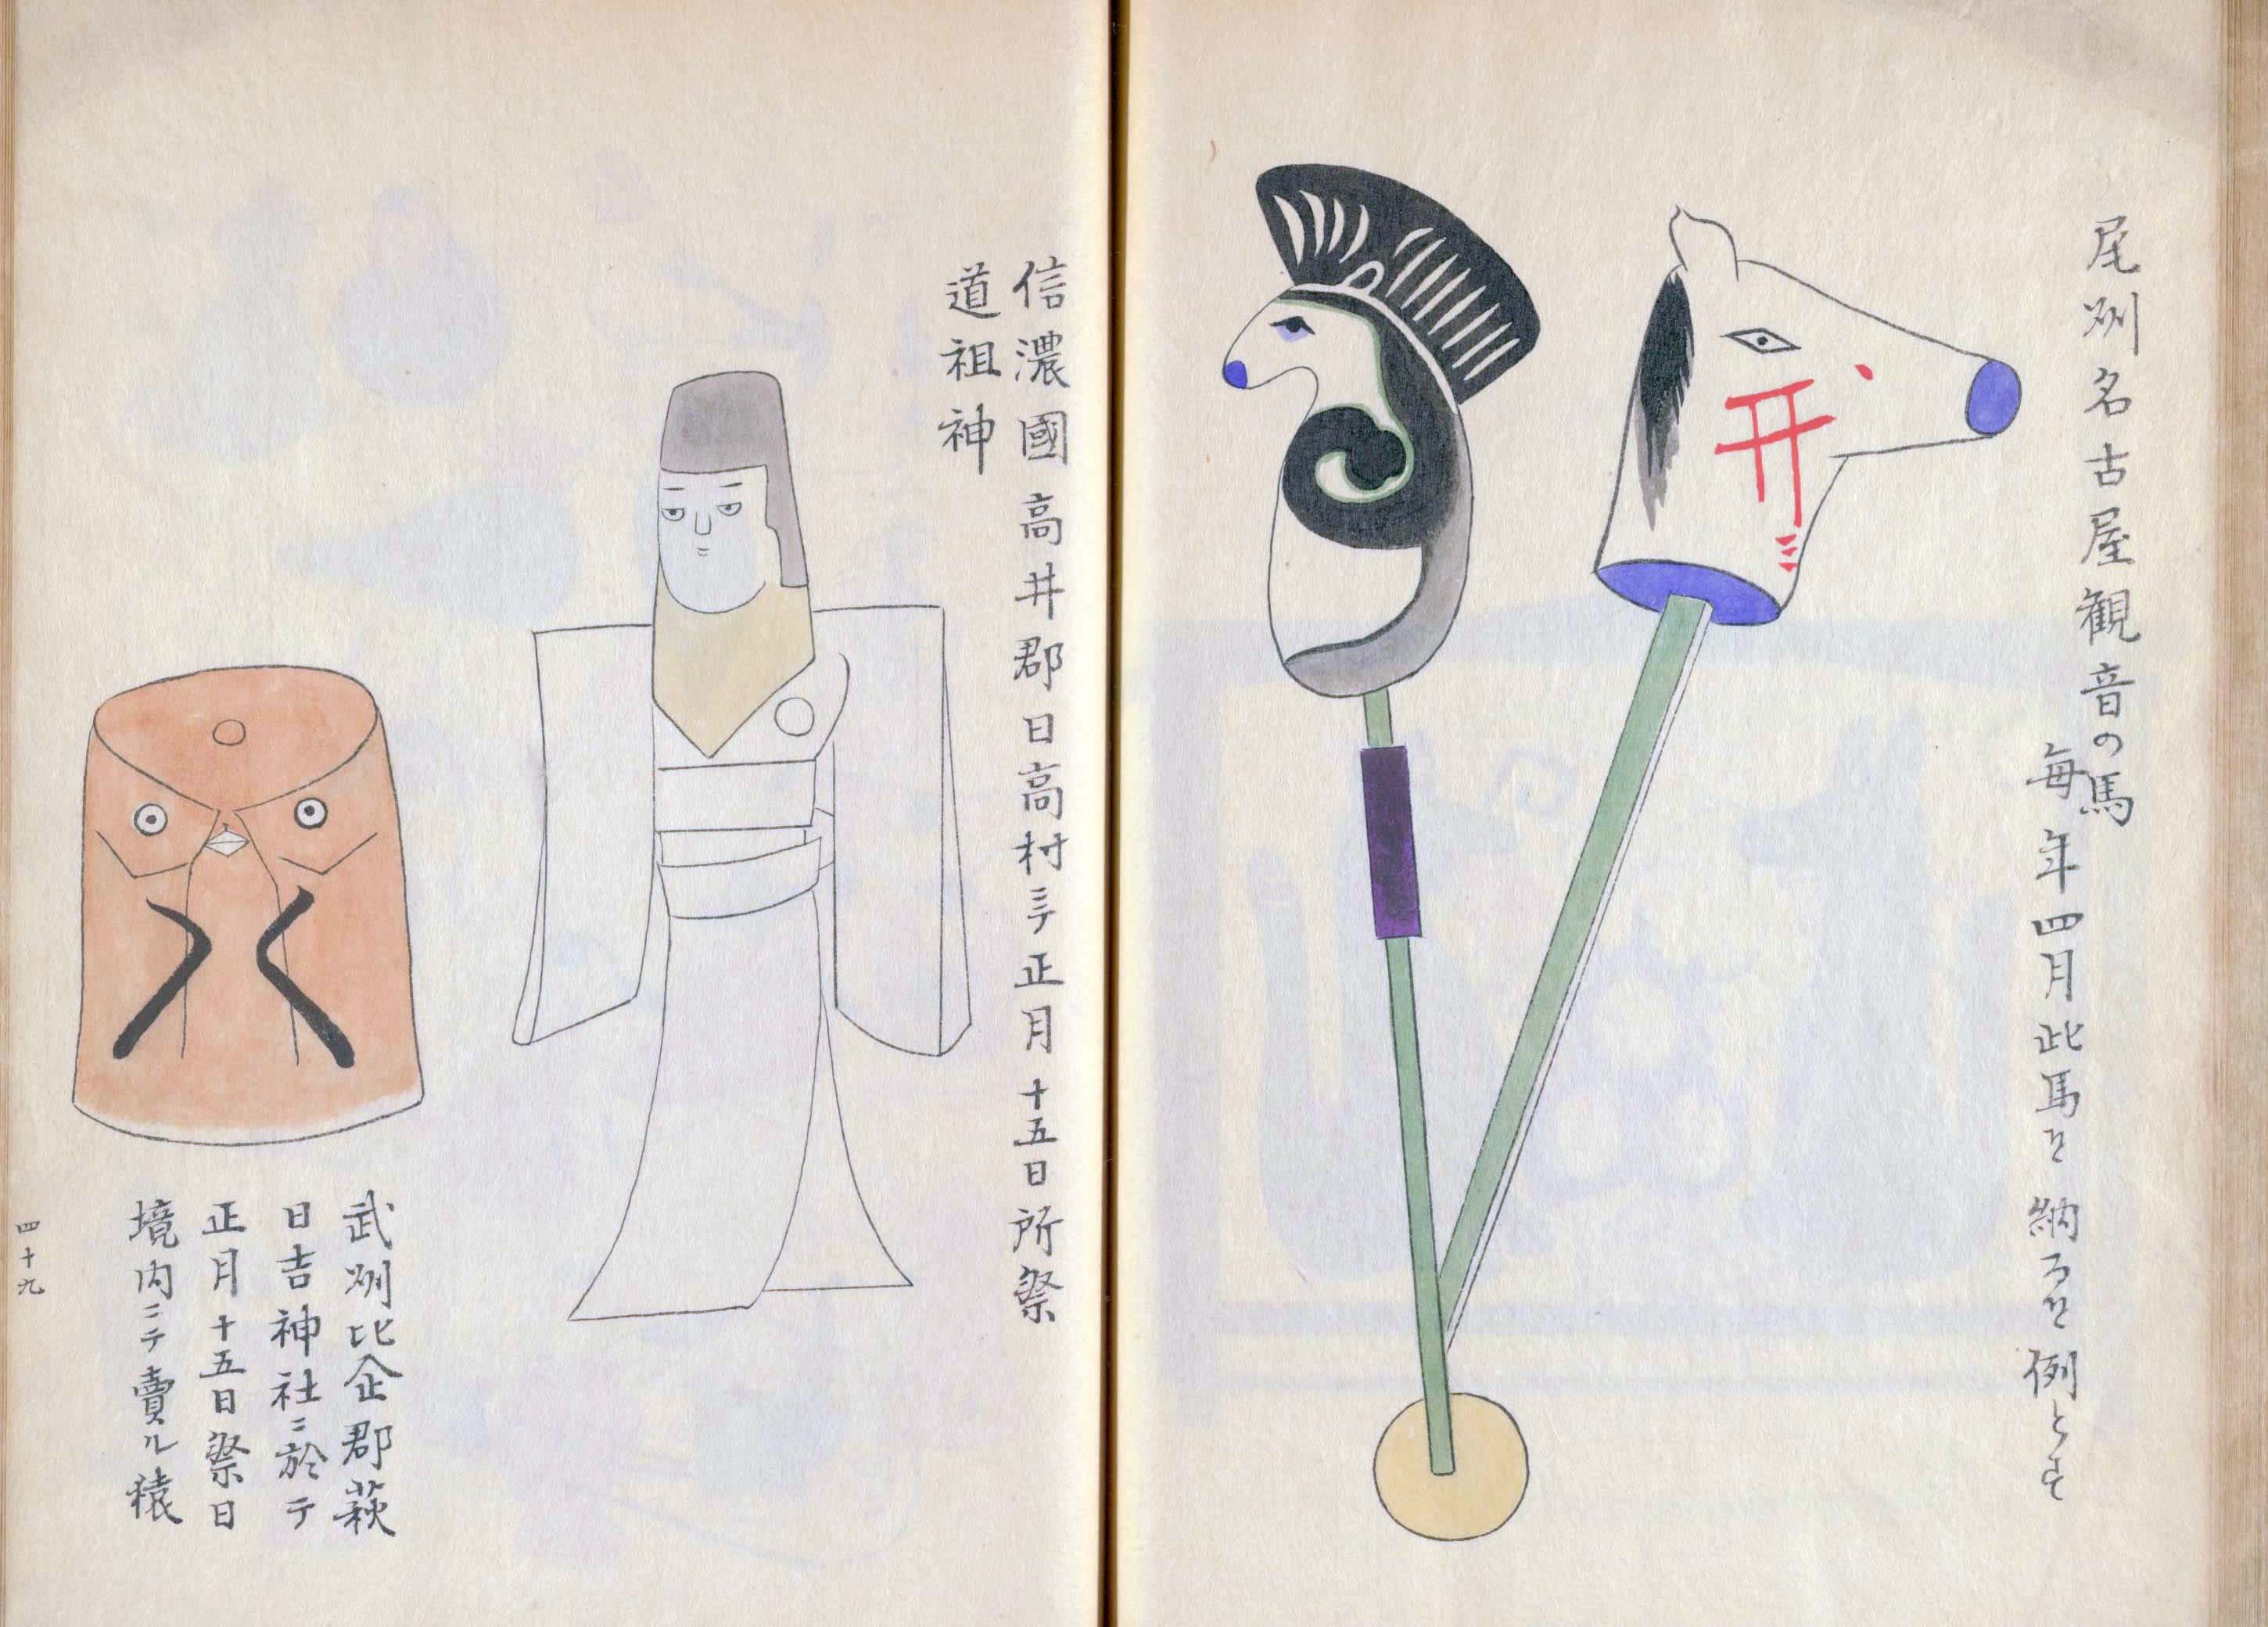 尾州名古屋観音の馬
毎年四月此馬を納るを例とす
信濃國高井郡日高村ニテ正月十五日所祭
道祖神
武州比企郡萩
日吉神社ニ於テ
正月十五日祭日
境内ニテ賣ル猿
四十九